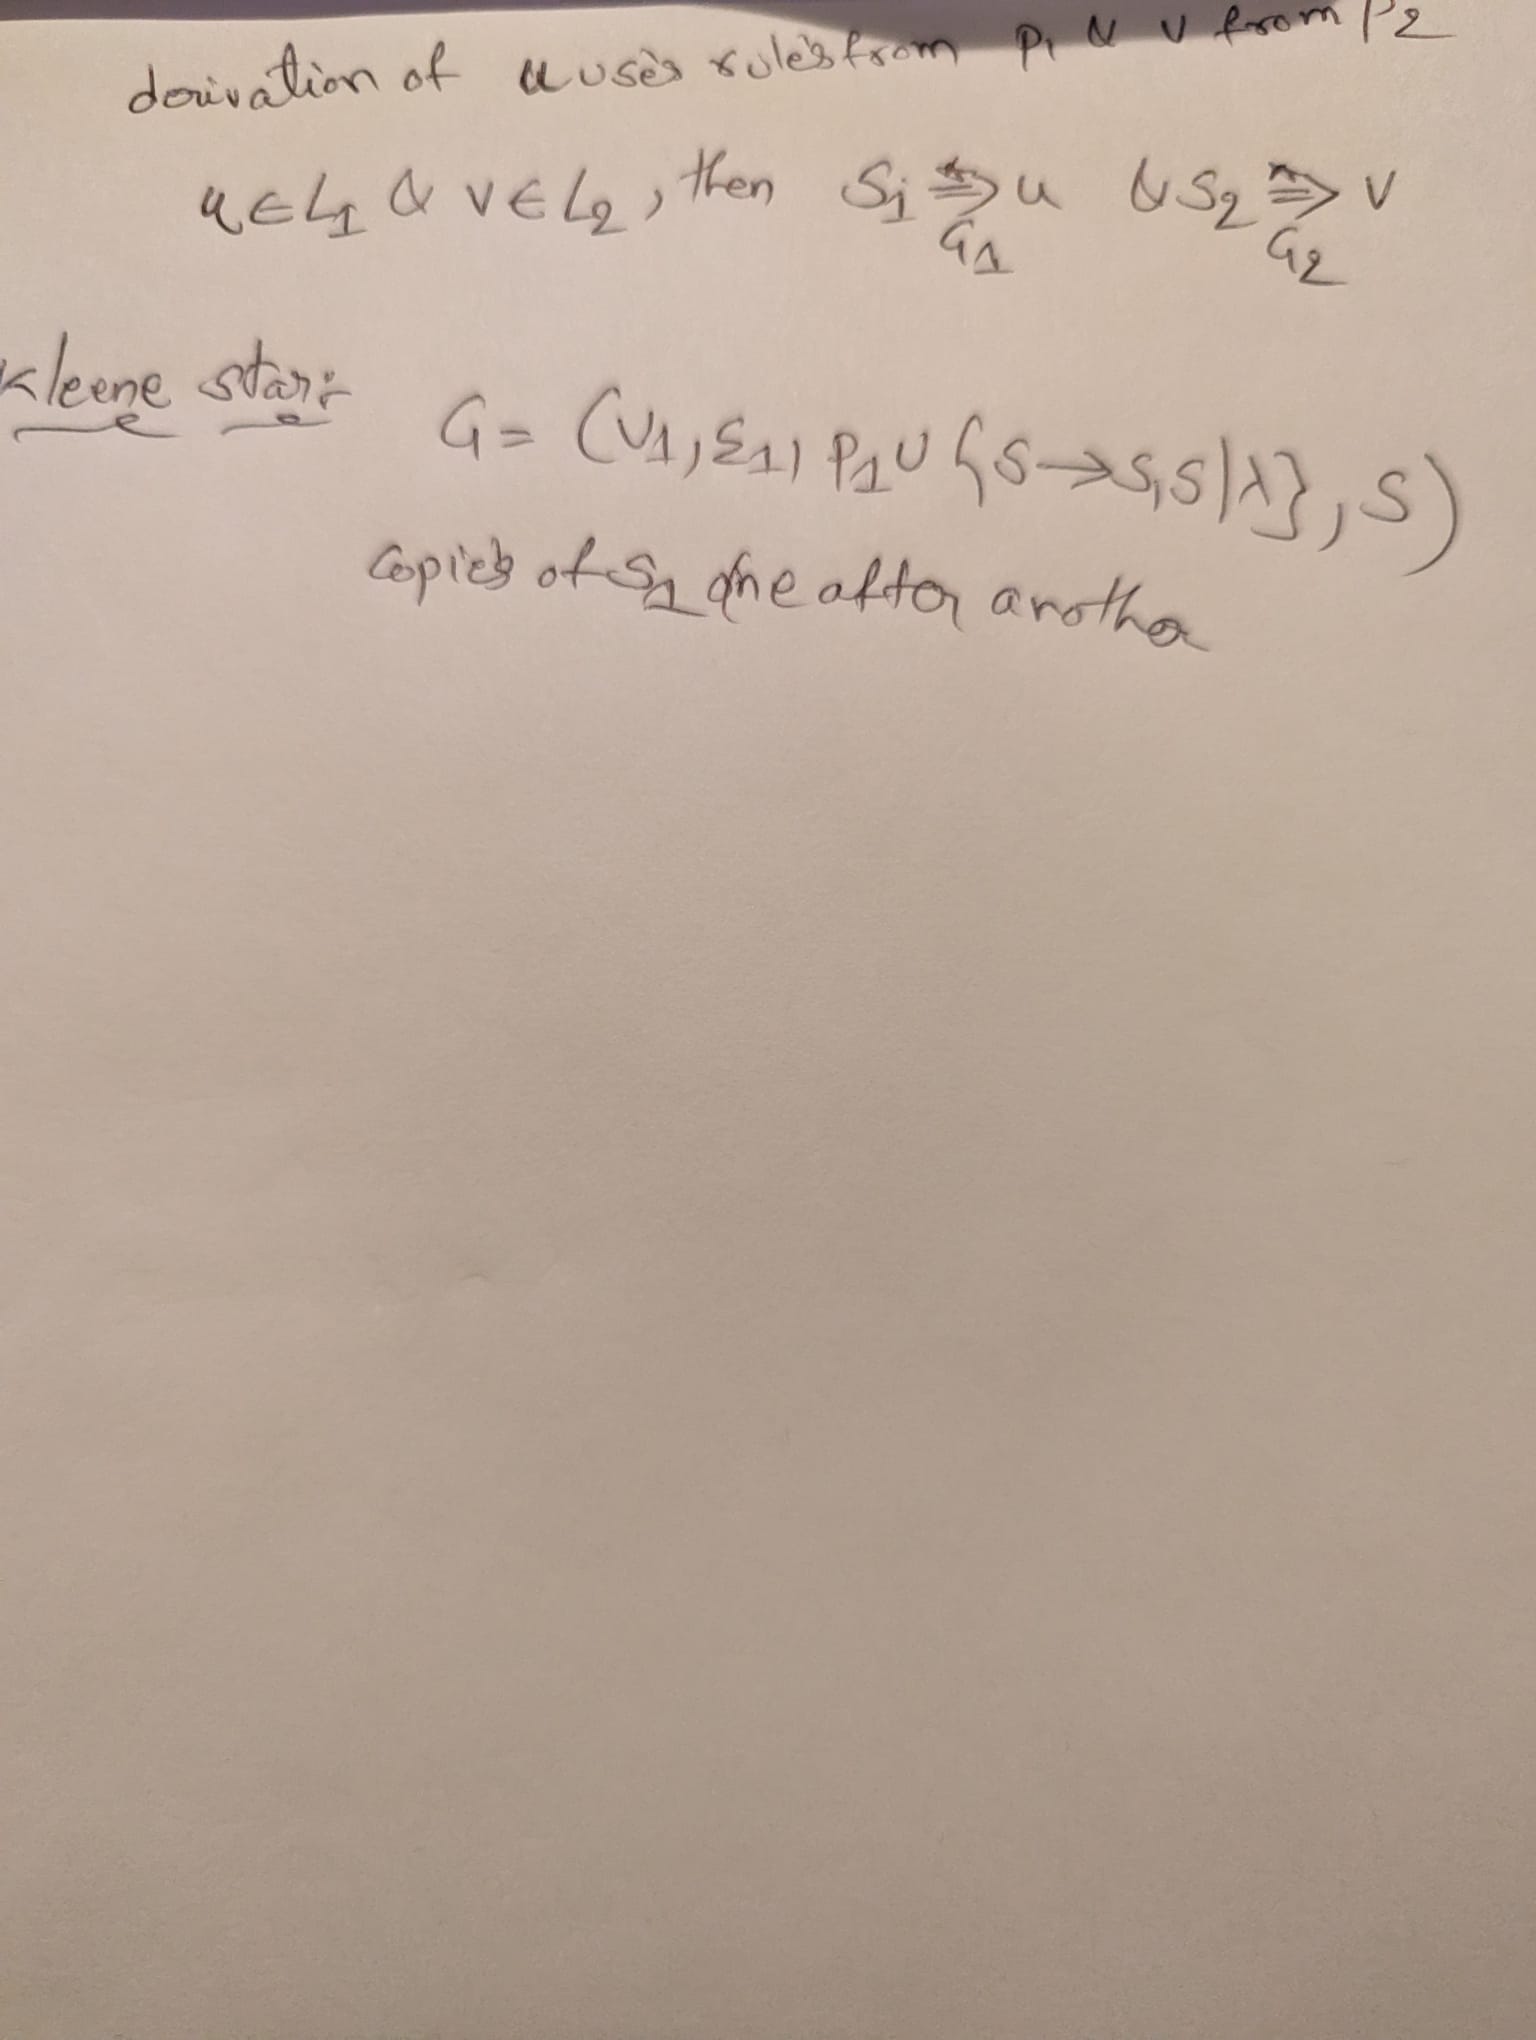 derivation of u uses rules from P₁ & v from P₂
u∈L₁ & v∈L₂, then S₁ *⇒G₁ u & S₂ *⇒G₂ v
Kleene star:-
G = (V₁, Σ₁, P₁ ∪ {S→S₁S|λ}, S)
Copies of S₁ one after another